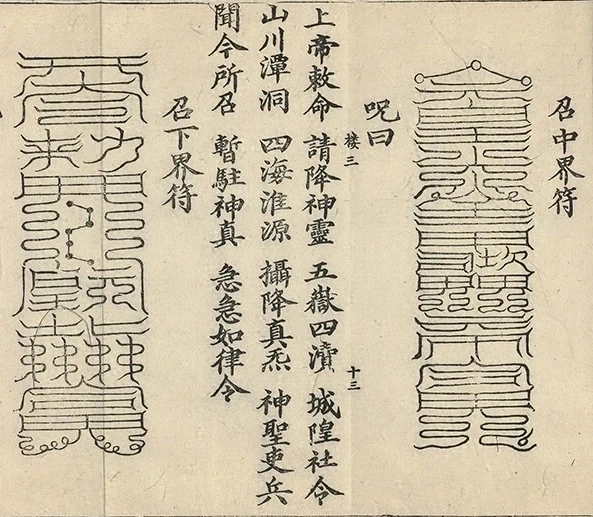 召中界符
呪曰
上帝敕命 請降神靈 五嶽四瀆 城隍社令
樓三 十三
山川潭洞 四海淮源 攝降真炁 神聖吏兵
聞今所召 暫駐神真 急急如律令
召下界符